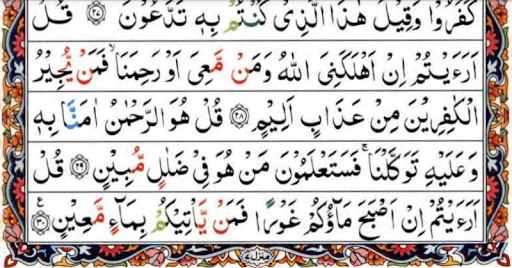 كَفَرُوْا وَقِيْلَ هٰذَا الَّذِىْ كُنْتُمْ بِهٖ تَدَّعُوْنَ ۝۲۷ قُلْ
اَرَءَيْتُمْ اِنْ اَهْلَكَنِىَ اللّٰهُ وَمَنْ مَّعِىَ اَوْ رَحِمَنَا ۙ فَمَنْ يُّجِيْرُ
الْكٰفِرِيْنَ مِنْ عَذَابٍ اَلِيْمٍ ۝۲۸ قُلْ هُوَ الرَّحْمٰنُ اٰمَنَّا بِهٖ
وَعَلَيْهِ تَوَكَّلْنَا ۚ فَسَتَعْلَمُوْنَ مَنْ هُوَ فِىْ ضَلٰلٍ مُّبِيْنٍ ۝۲۹ قُلْ
اَرَءَيْتُمْ اِنْ اَصْبَحَ مَآؤُكُمْ غَوْرًا فَمَنْ يَّاْتِيْكُمْ بِمَآءٍ مَّعِيْنٍ ۝۳۰ ع
منزل ۷